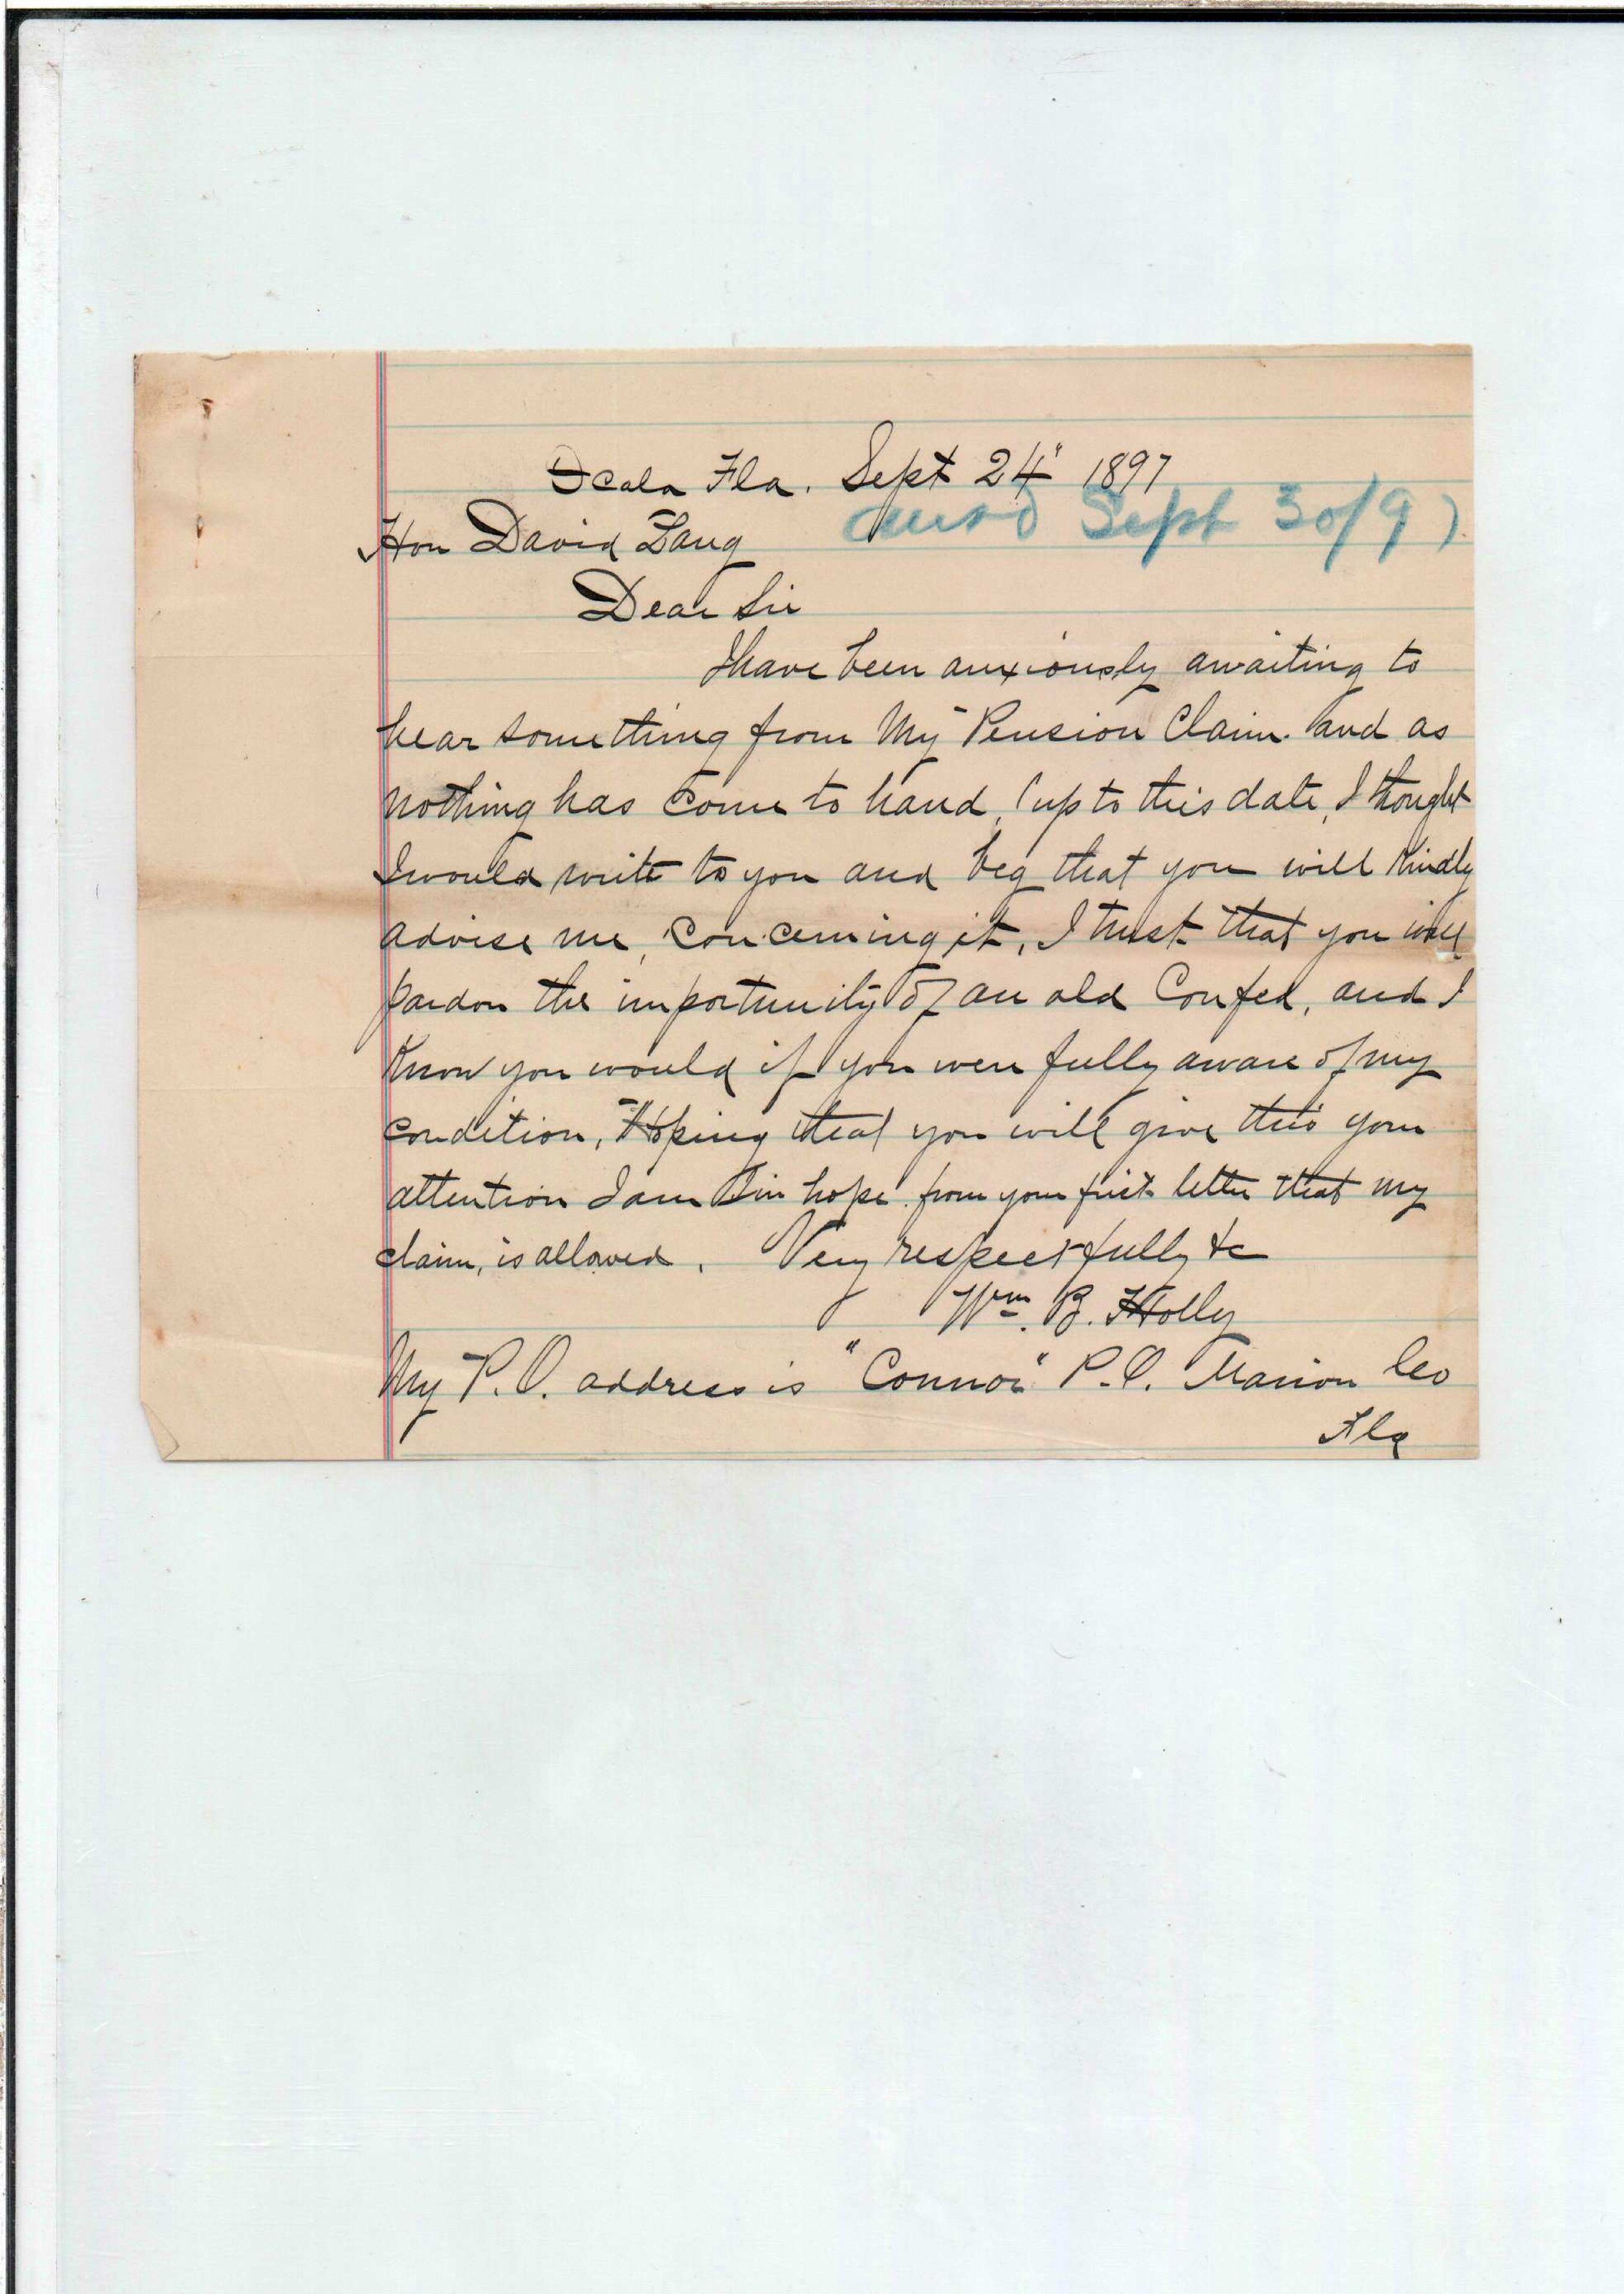 Ocala Fla. Sept 24" 1897
Ansd Sept 30/97
Hon David Lang
Dear Sir
I have been anxiously awaiting to
hear something from My Pension Claim. and as
nothing has come to hand, up to this date, I thought
I would write to you and beg that you will kindly
advise me, concerning it, I trust that you will
pardon the importunity of an old Confed, and I
Know you would if you were fully aware of my
condition, Hoping that you will give this your
attention I am in hope from your first letter that my
claim, is allowed. Very respectfully &c
Wm. B. Holly
My P.O. address is "Connor" P.O. Marion Co
Fla